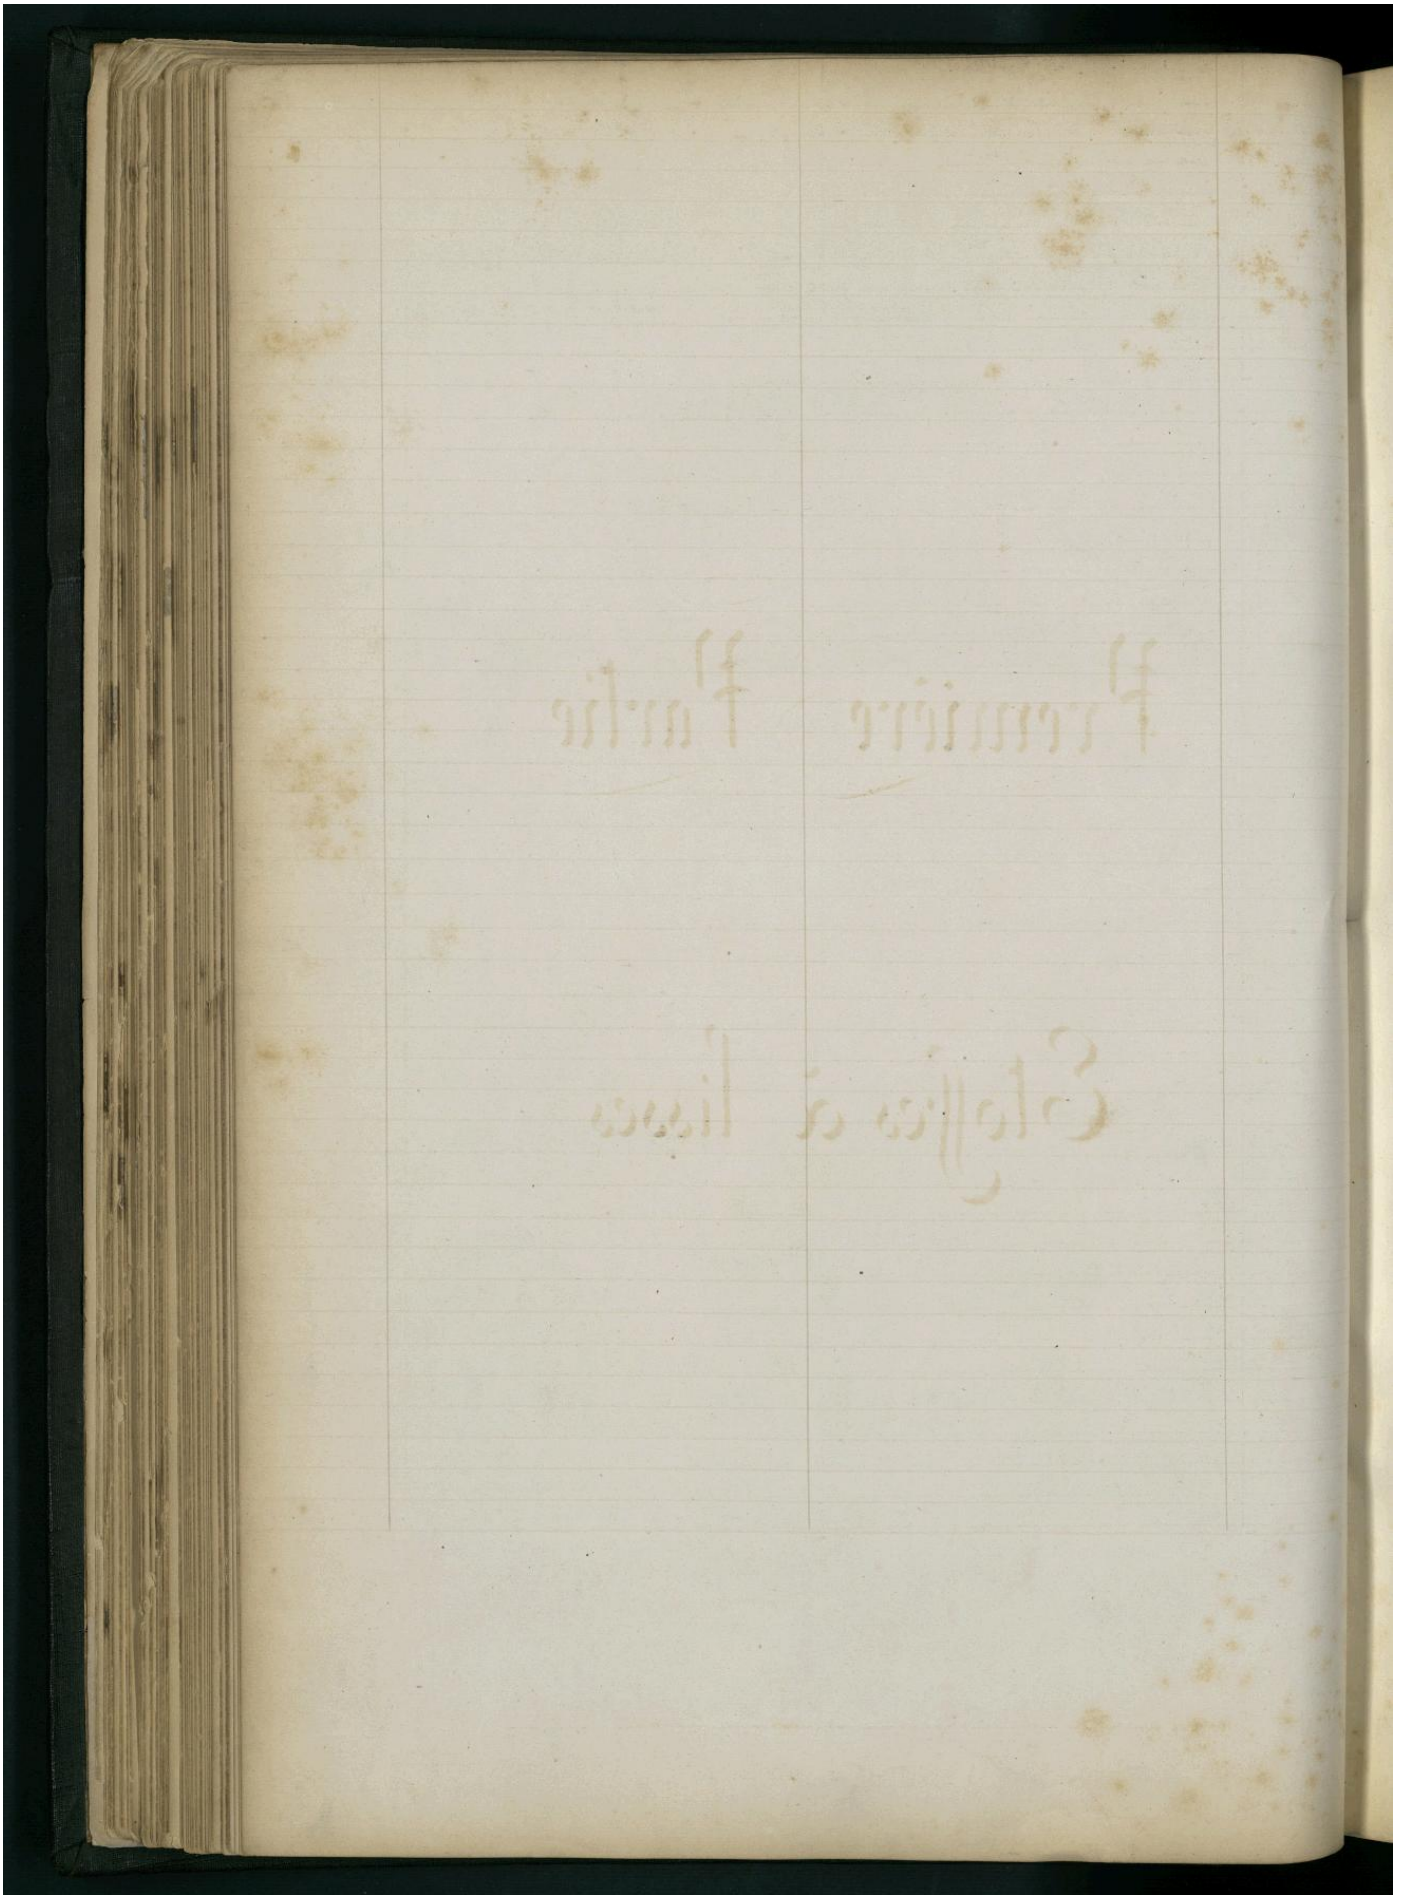 Première Partie
Etoffes à lisses